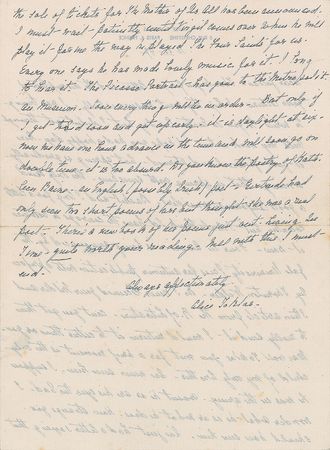 the sale of tickets for The Mother of Us All has been announced.
I must wait patiently until Virgil comes over when he will
play it for me the way he played the Four Saints for us.
Every one says he has made lovely music for it. I long
to hear it. The Picasso Portrait has gone to the Metropolitan
Museum. So everything will be in order. But only if
I get to bed soon and get up early. it is daylight at six.
now we have one hour advance in the time and will soon go on
double time. it is too absurd. Do you know the poetry of Kath
leen Raine. an English (possibly Irish) poet. Gertrude had
only seen two short poems of hers but thought she was a real
poet. There's a new book of her poems just out.
quite worth your reading. And with this I must
end.
Always affectionately
Alice Toklas.